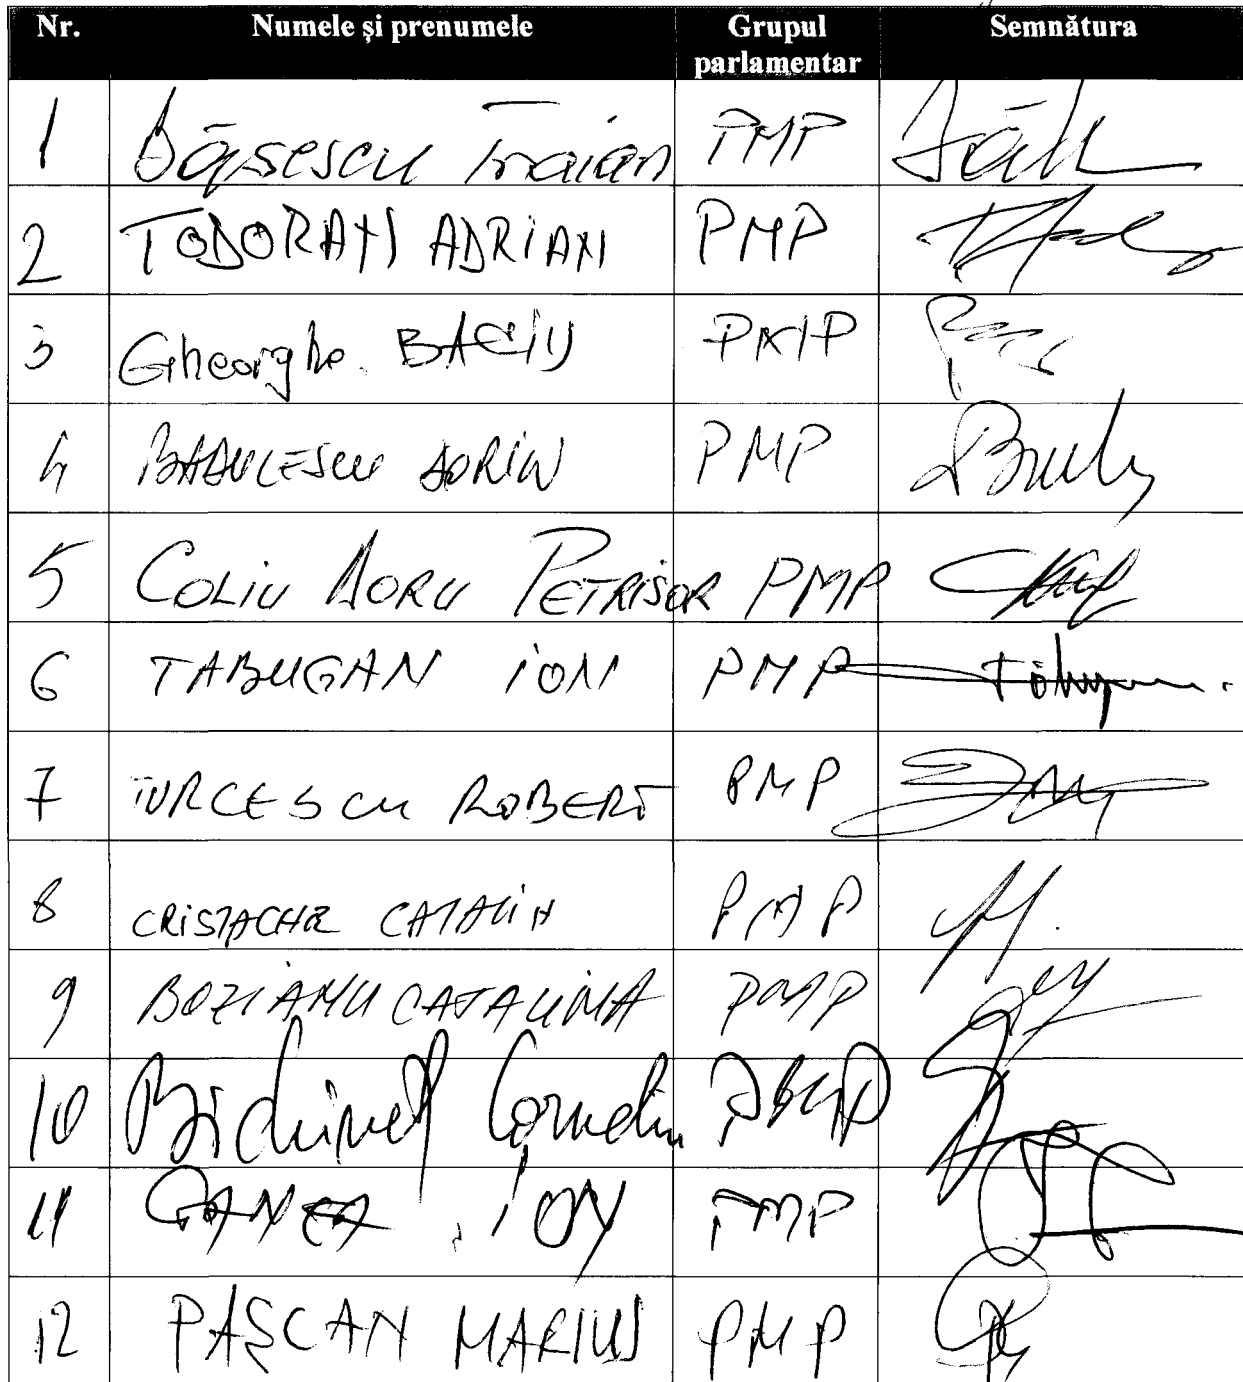 Nr. Numele și prenumele Grupul parlamentar Semnătura
1 Băsescu Traian PMP
2 TODORAȚI ADRIAN PMP
3 Gheorghe BACIU PMP
4 BĂDULESCU DORIN PMP
5 COLIU DORU PETRIȘOR PMP
6 TABUGAN ION PMP
7 TURCESCU ROBERT PMP
8 CRISTACHE CATALIN PMP
9 BOZIANU CATALINA PMP
10 Bichineț Corneliu PMP
11 GANEA ION PMP
12 PAȘCAN MARIUS PMP